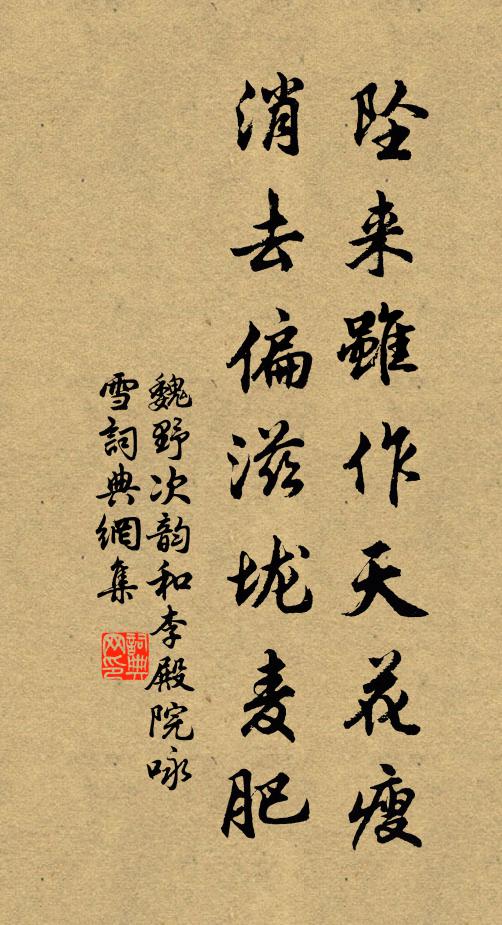 坠来雖作天花瘦
消去偏滋垅麦肥
魏野次韵和李殿院咏
雪詞典網集
詞典网印